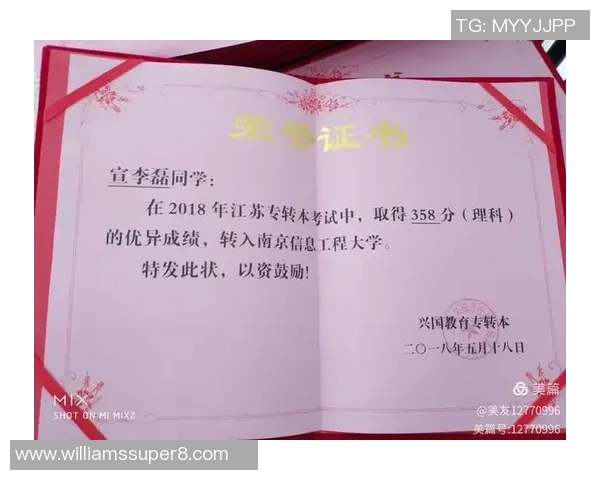 TG: MYYJJPP
荣誉证书
宣李磊同学：
在 2018 年江苏专转本考试中，取得 358 分（理科）
的优异成绩，转入南京信息工程大学。
特发此状，以资鼓励!
兴国教育专转本
二〇一八年五月十八日
MIX
SHOT ON MI MIX2
美篇
@美友12770996
美篇号:12770996
www.williamssuper8.com